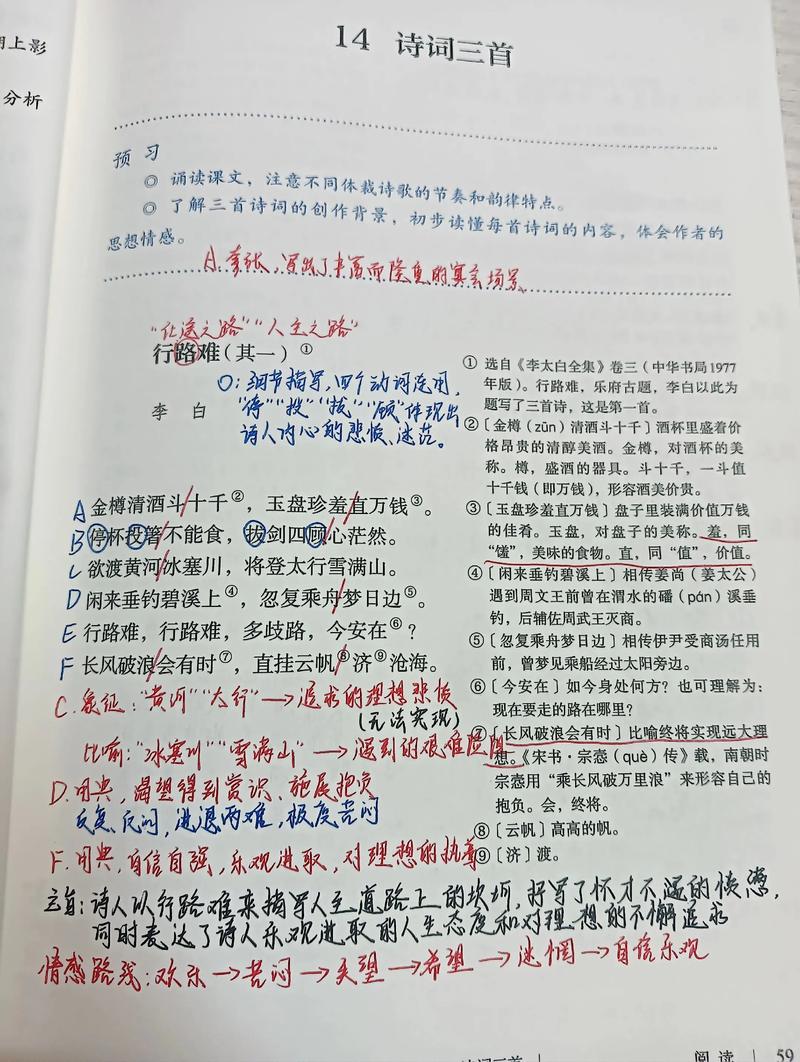 朝上影
分析
14 诗词三首
预 习
◎ 诵读课文，注意不同体裁诗歌的节奏和韵律特点。
◎ 了解三首诗词的创作背景，初步读懂每首诗词的内容，体会作者的
思想情感。
A. 夸张，写出了丰富而隆重的宴会场景
"仕途之路""人生之路"
行路难（其一）①
李 白
O：细节描写，四个动词连用，
"停""投""拔""顾"体现出
诗人内心的悲愤、迷茫。
A 金樽清酒斗/十千②，玉盘珍羞/直万钱③。
B 停杯投箸/不能食，拔剑四顾/心茫然。
C 欲渡黄河/冰塞川，将登太行雪满山。
D 闲来垂钓碧溪上④，忽复乘舟/梦日边⑤。
E 行路难，行路难，多歧路，今安在⑥？
F 长风破浪/会有时⑦，直挂云帆⑧/济⑨沧海。
① 选自《李太白全集》卷三（中华书局1977
年版）。行路难，乐府古题，李白以此为
题写了三首诗，这是第一首。
②〔金樽（zūn）清酒斗十千〕酒杯里盛着价
格昂贵的清醇美酒。金樽，对酒杯的美
称。樽，盛酒的器具。斗十千，一斗值
十千钱（即万钱），形容酒美价贵。
③〔玉盘珍羞直万钱〕盘子里装满价值万钱
的佳肴。玉盘，对盘子的美称。羞，同
"馐"，美味的食物。直，同"值"，价值。
④〔闲来垂钓碧溪上〕相传姜尚（姜太公）
遇到周文王前曾在渭水的磻（pán）溪垂
钓，后辅佐周武王灭商。
⑤〔忽复乘舟梦日边〕相传伊尹受商汤任用
前，曾梦见乘船经过太阳旁边。
⑥〔今安在〕如今身处何方？也可理解为：
现在要走的路在哪里？
⑦〔长风破浪会有时〕比喻终将实现远大理
想。《宋书·宗悫（què）传》载，南朝时
宗悫用"乘长风破万里浪"来形容自己的
抱负。会，终将。
⑧〔云帆〕高高的帆。
⑨〔济〕渡。
C. 象征："黄河""太行"→追求的理想
(无法实现)
比喻："冰塞川""雪满山"→遇到的艰难险阻
D. 用典，渴望得到赏识、施展抱负
反复、反问，进退两难，极度苦闷
F. 用典，自信自强，乐观进取，对理想的执着
主旨：诗人以行路难来描写人生道路上的坎坷，抒写了怀才不遇的愤懑，
同时表达了诗人乐观进取的人生态度和对理想的不懈追求
情感路线：欢乐→苦闷→失望→希望→迷惘→自信乐观
诗词三首
阅 读 59